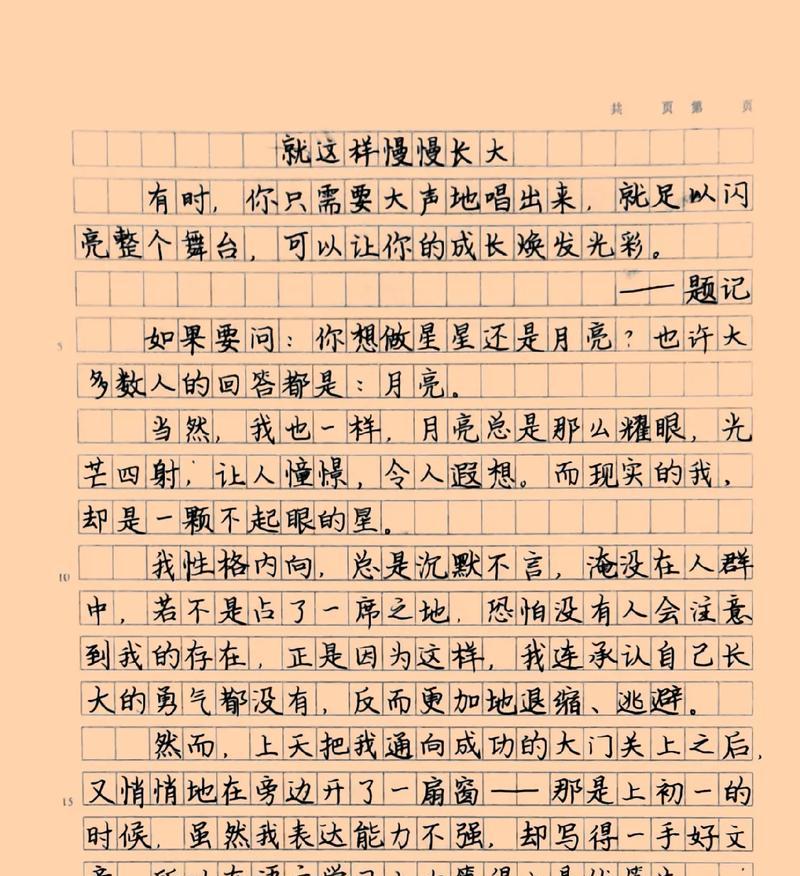 共 页 第 页
就这样慢慢长大
有时，你只需要大声地唱出来，就足以闪
亮整个舞台，可以让你的成长焕发光彩。
——题记
5
如果要问：你想做星星还是月亮？也许大
多数人的回答都是：月亮。
当然，我也一样，月亮总是那么耀眼，光
芒四射，让人憧憬，令人遐想。而现实的我，
却是一颗不起眼的星。
10
我性格内向，总是沉默不言，淹没在人群
中，若不是占了一席之地，恐怕没有人会注意
到我的存在，正是因为这样，我连承认自己长
大的勇气都没有，反而更加地退缩、逃避。
然而，上天把我通向成功的大门关上之后，
15
又悄悄地在旁边开了一扇窗——那是上初一的
时候，虽然我表达能力不强，却写得一手好文